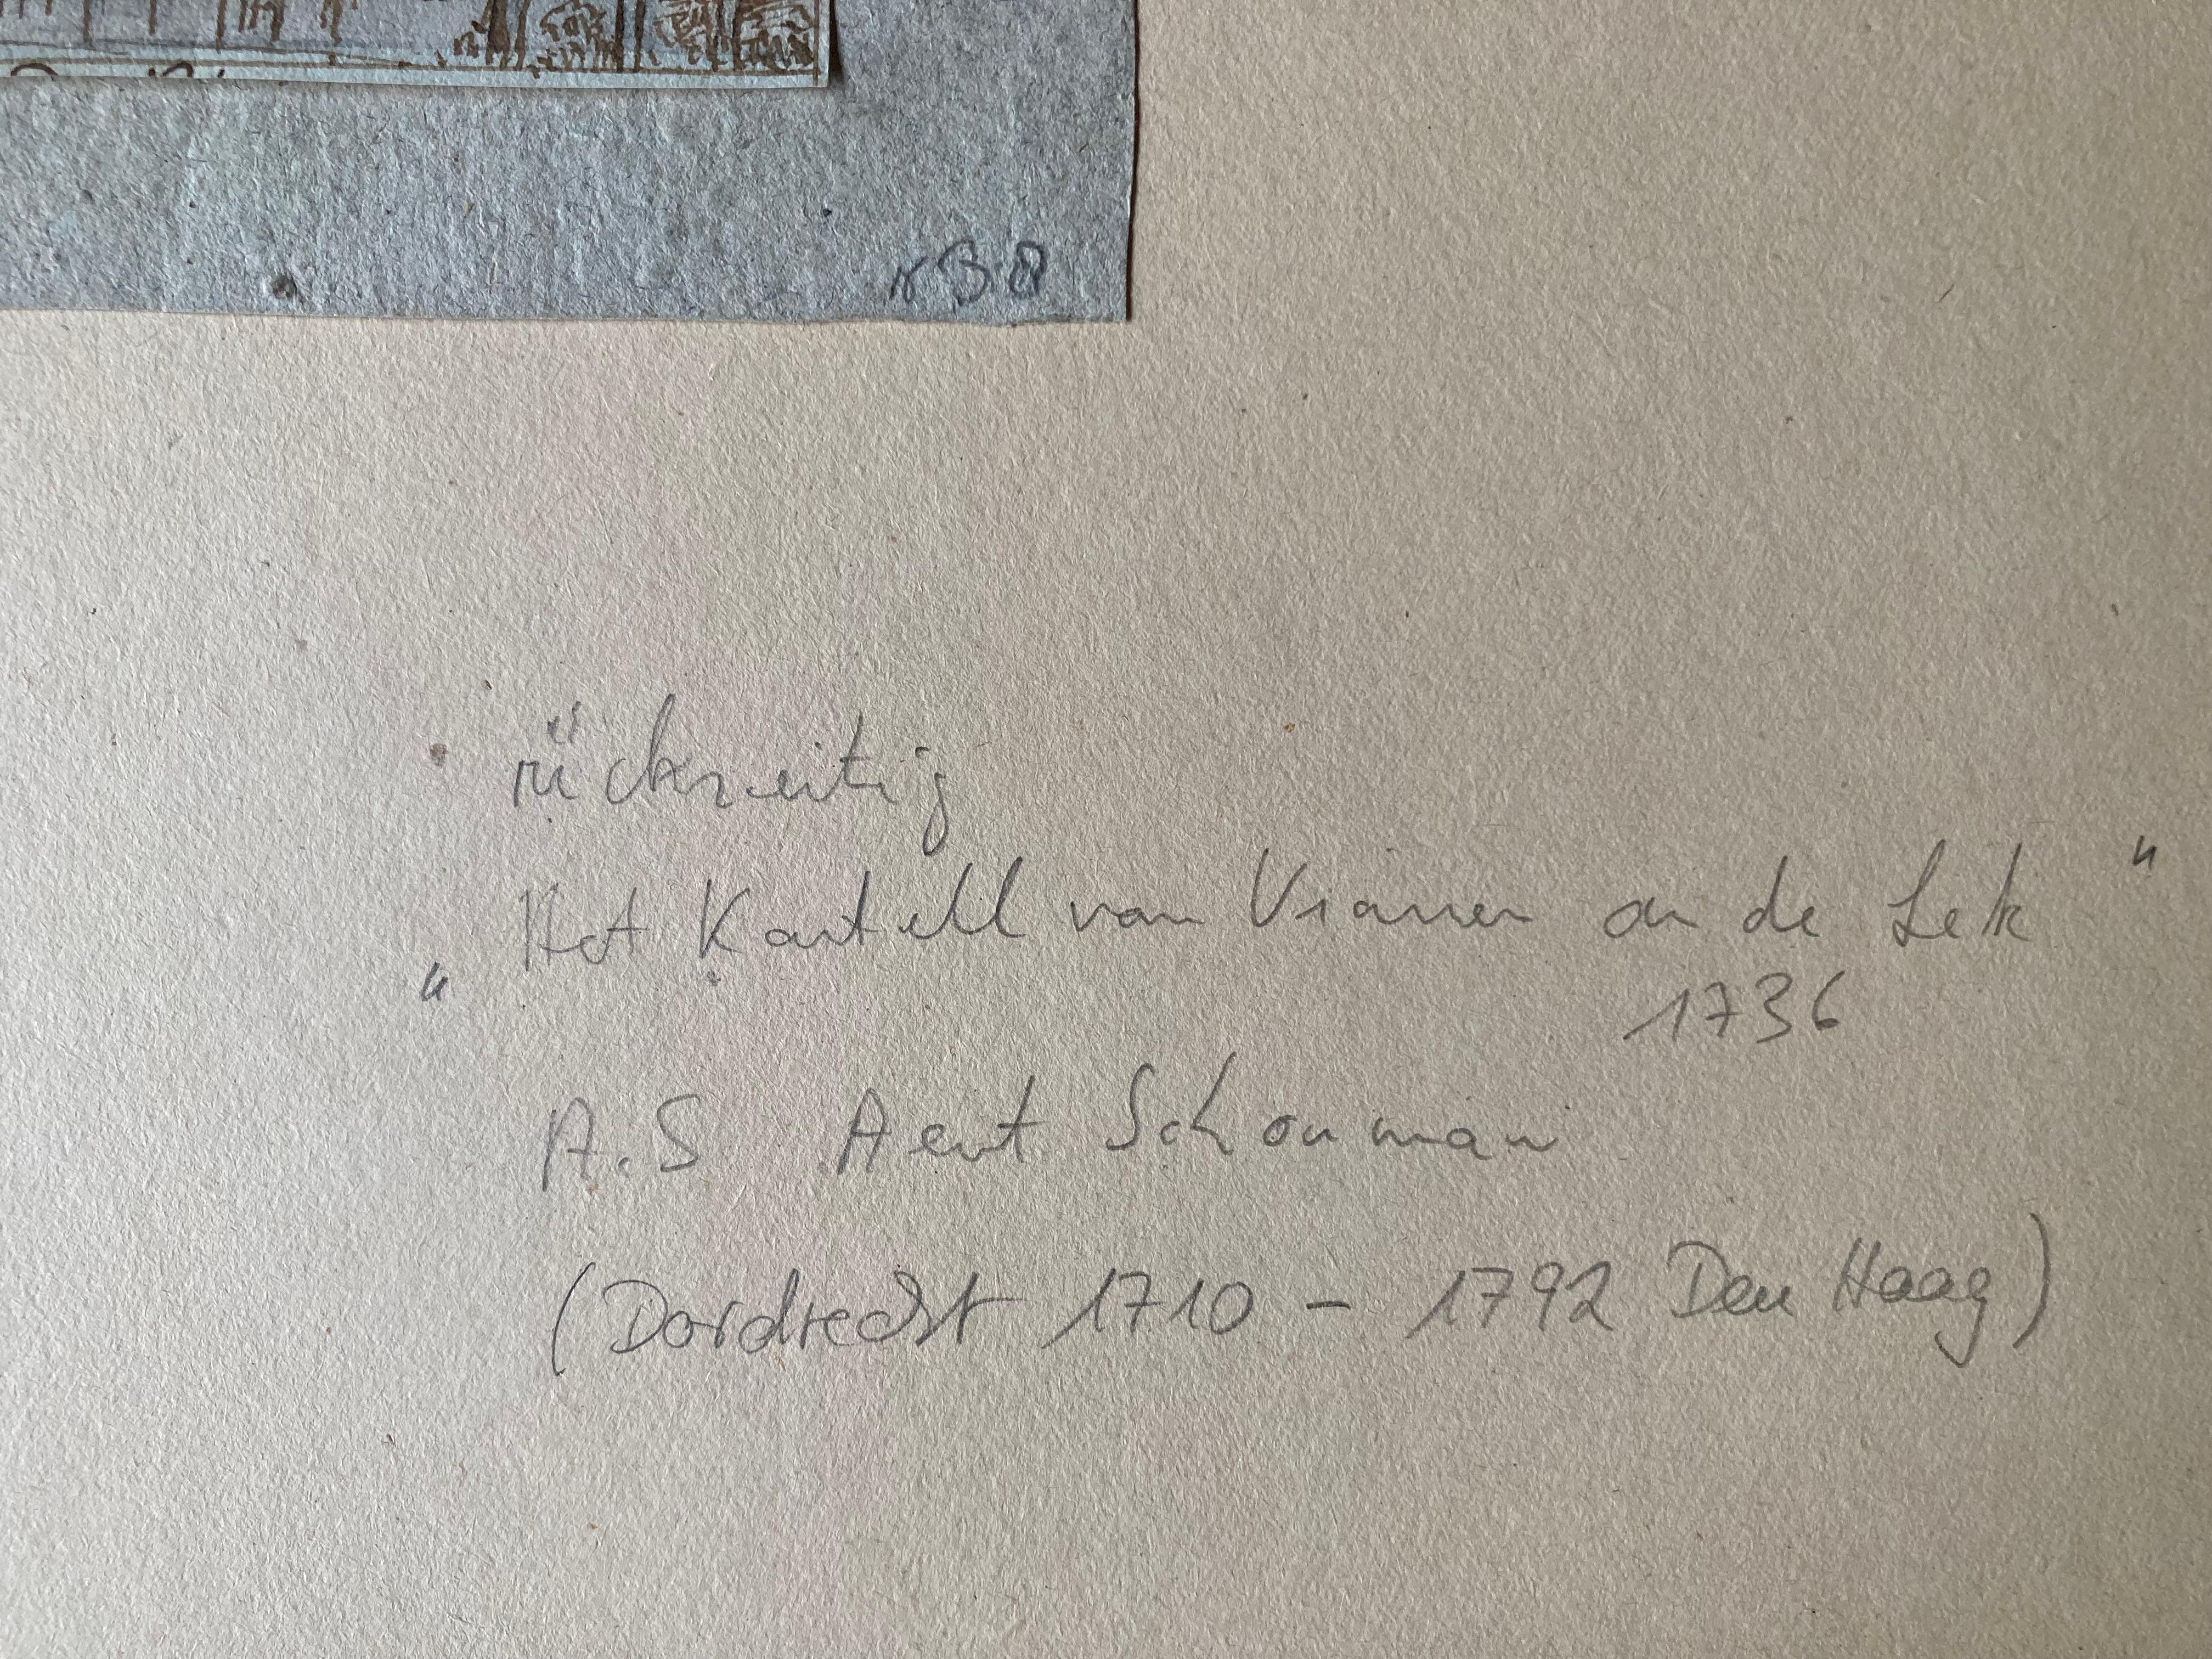 rückseitig
„Het Kastell van Vianen an de Lek"
1736
A.S Aert Schouman
(Dordrecht 1710 – 1792 Den Haag)